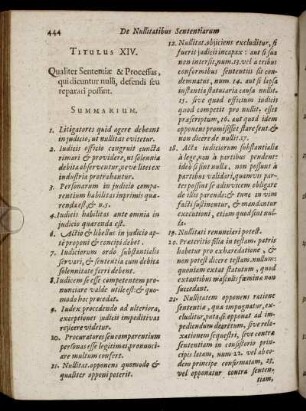 444
De Nullitatibus Sententiarum
TITULUS XIV.
Qualiter Sententiæ & Processus,
qui dicuntur nulli, defendi seu
reparari possint.
SUMMARIUM.
1. Litigatoris quid agere debent
in judicio, ut nullitas evitetur.
2. Judicis officio congruit cuncta
rimari & providere, ut solennia
debita observentur, neve lites ex
industria protrahantur.
3. Personarum in judicio compa-
rentium habilitas inprimis quæ-
renda est, & n. 5.
4. Judicis habilitas ante omnia in
judicio quærenda est.
6. Acto & libellus in judicio ap-
tè proponi & concipi debet.
7. Judiciorum ordo substantialis
servari, & sententia cum debita
solennitate fieri debent.
8. Judicem se esse competentem pro-
nunciare valde utile est, & quo-
modo hoc procedat.
9. Judex procedendo ad ulteriora,
exceptiones judicii impeditivas
rejicere videtur.
10. Procuratores seu comparentium
personas esse legitimas, pronuncia-
re multum confert.
11. Nullitas opponens quomodo &
qualiter opponi poterit.
12. Nullitas, objiciens excluditur, si
fuerit judicii incapax: aut si sua
non intersit, num. 13. vel a tribus
conformibus sententiis sit con-
demnatus, num. 14. aut si lapsa
instantia statutaria causa nullit.
15. sive quod officium judicis
quod competit pro nullo, esset
præscriptum, 16. aut quod idem
opponens promisisset stare sent. &
non dicere de nullit. 17.
18. Acta judiciorum substantialia
à lege, non à partibus provideni-
da, tanquam nulla, non possunt à
partibus validari, quamvis par-
tes possint se advicem obligare
de illis parendo, & tunc in vim
pacti sustinentur, & mandantur
executioni, etiam quod sint nul-
la.
19. Nullitati renunciari potest.
20. Prateritio filia in testam. patris
habetur pro exheredatione, &
non potest dicere testam. nullum:
quoniam extat statutum, quod
extantibus masculis fœmina non
succedat.
21. Nullitatem opponens ratione
sententia, qua impugnatur, ex-
cluditur, rata si opponat ad im-
pediendum decretum, sive rela-
xationem sequestri, sive contra
sententiam in consistorio princi-
pis latam, num. 22. vel abor-
dem principe confirmatam, 23.
vel opponatur contra senten-
tiam,